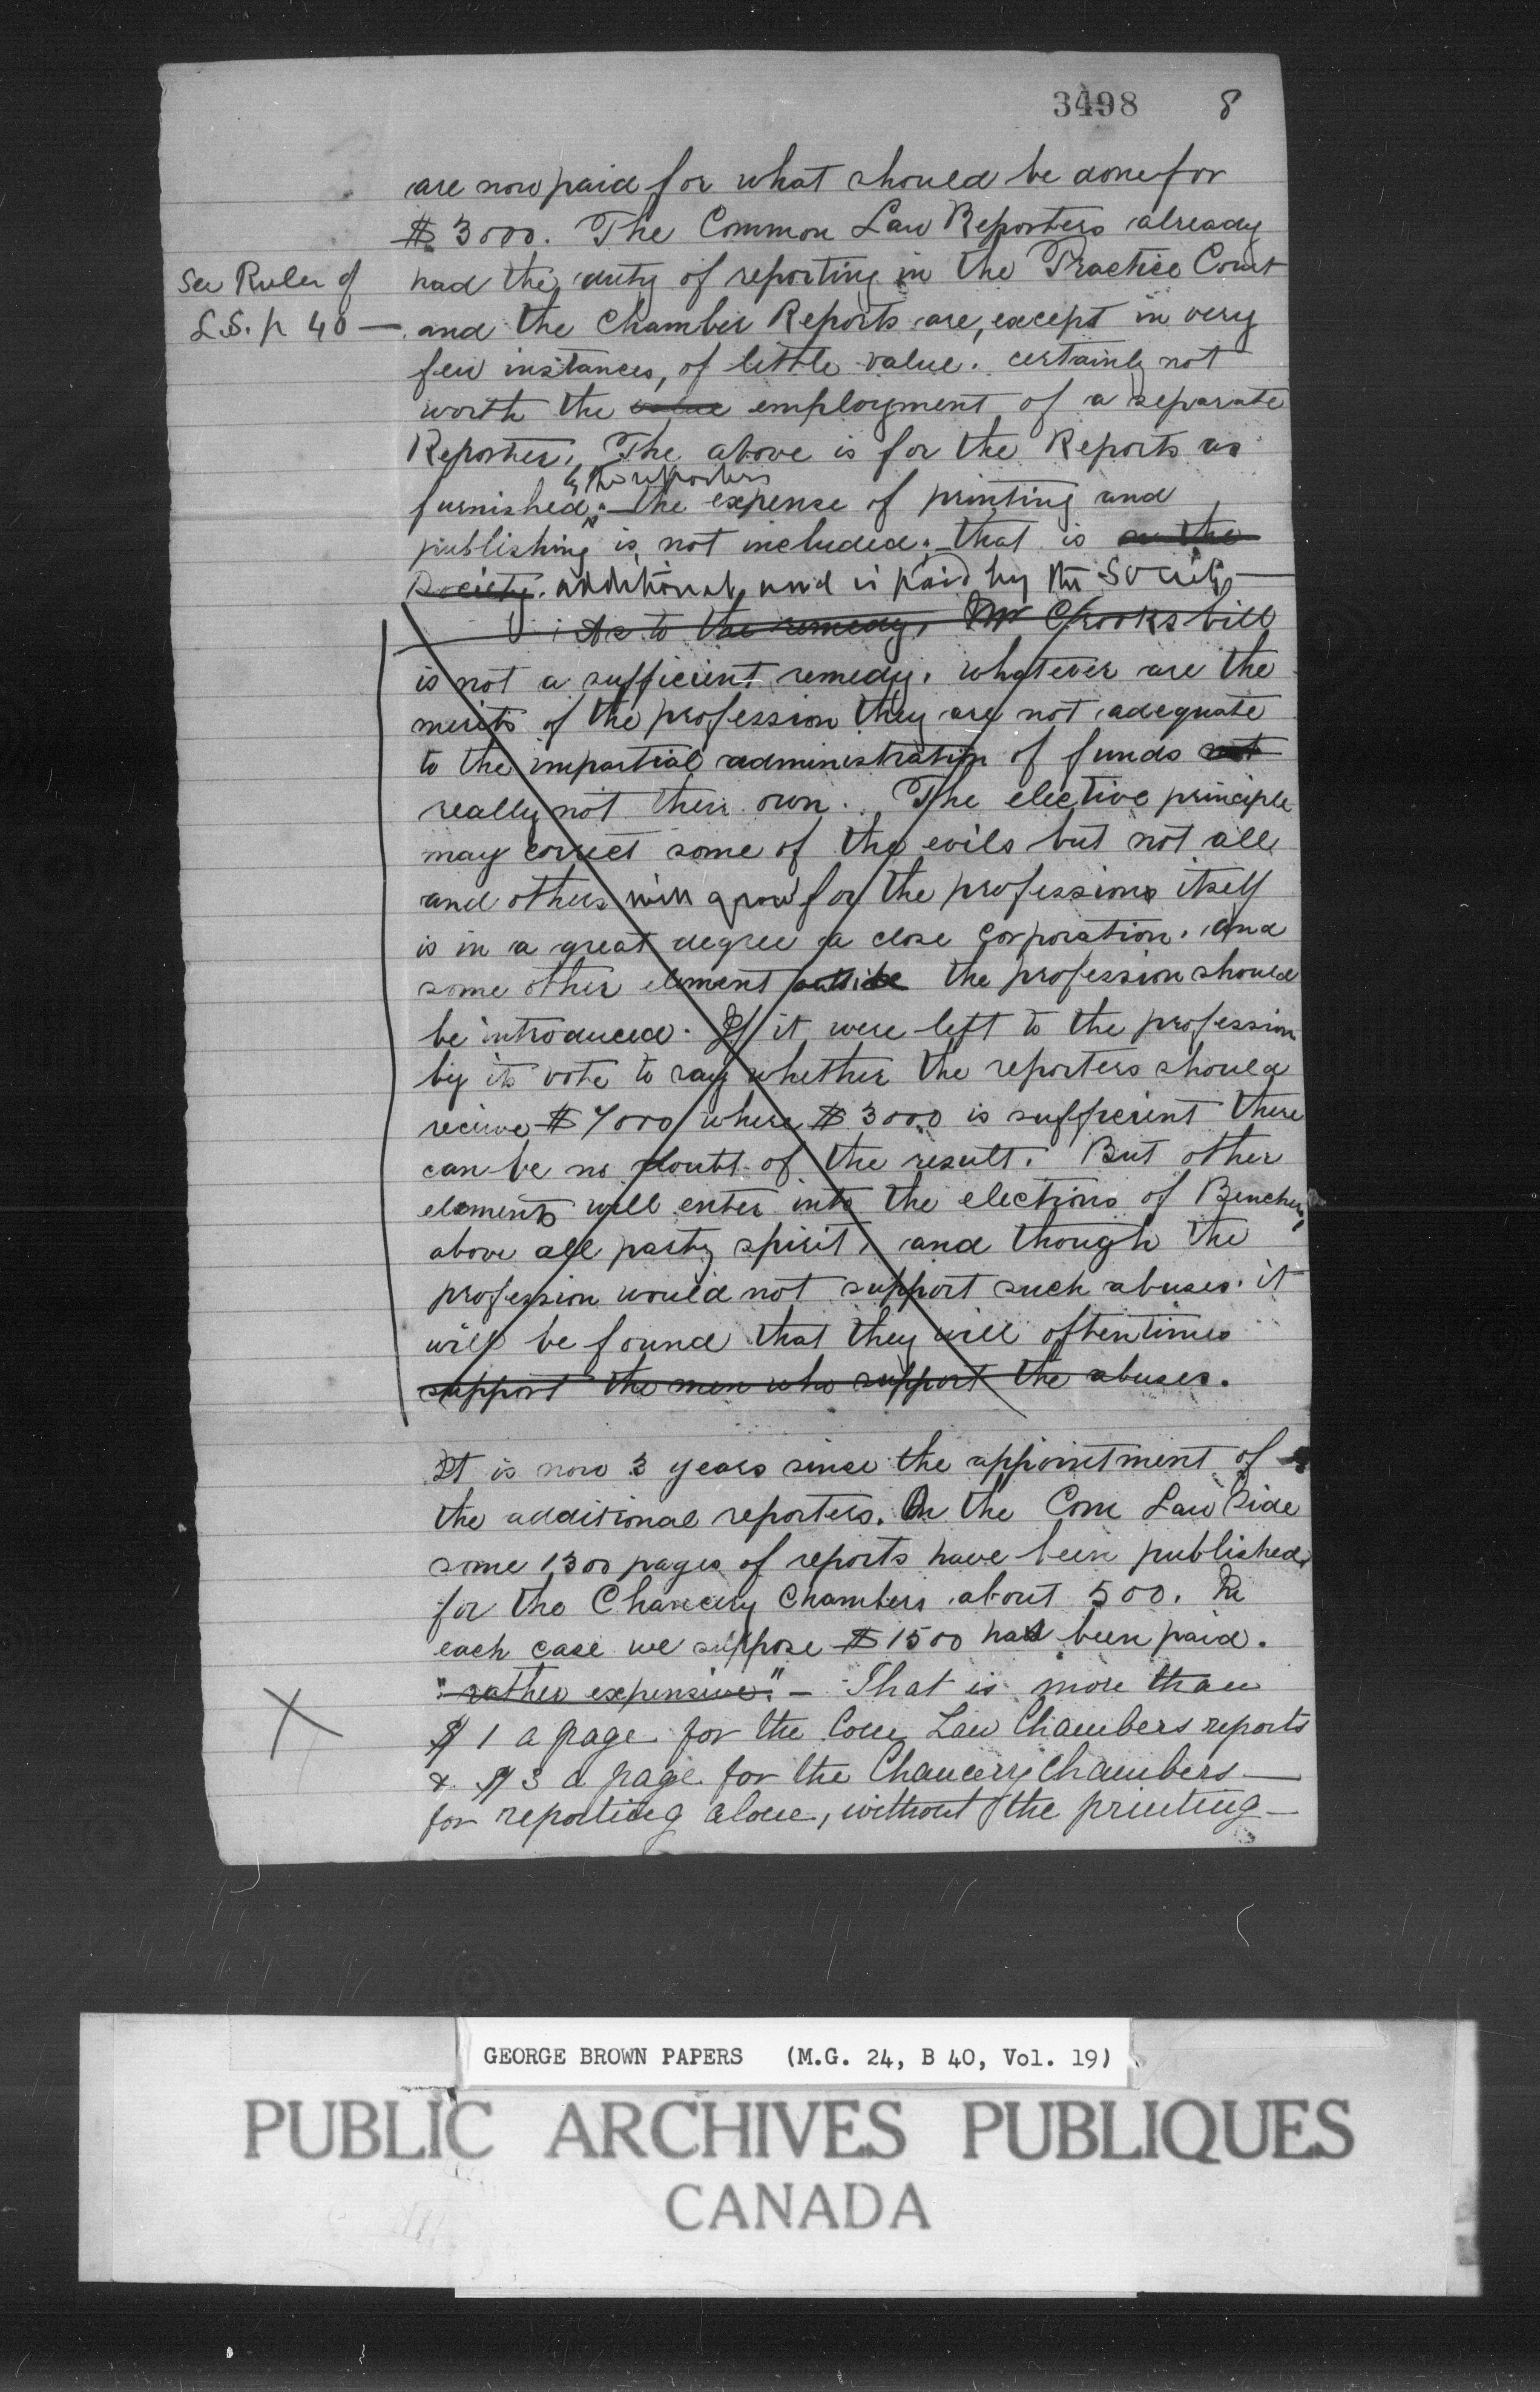 3498 8
are now paid for what should be done for
$3000. The Common Law Reporters already
See Rules of
had the duty of reporting in the Practice Court
L.S. p 40 —
and the Chamber Reports are, except in very
few instances, of little value. certainly not
worth the value employment of a separate
Reporter. The above is for the Reports as
by the reporters
furnished: — the expense of printing and
publishing is not included: that is on the
Society. additional, and is paid by the Society —
As to the remedy, Mr Crooks bill
is not a sufficient remedy. whatever are the
merits of the profession they are not adequate
to the impartial administration of funds not
really not their own. The elective principle
may correct some of the evils but not all
and others will grow for the profession itself
is in a great degree a close corporation. and
some other element outside the profession should
be introduced. If it were left to the profession
by its vote to say whether the reporters should
receive $7000 where $3000 is sufficient there
can be no doubt of the result. But other
elements will enter into the elections of Benchers,
above all party spirit, and though the
profession would not support such abuses. it
will be found that they will oftentimes
support the men who support the abuses.
It is now 3 years since the appointment of
the additional reporters. On the Com Law Side
some 1300 pages of reports have been published,
for the Chancery Chambers about 500. In
each case we suppose $1500 has been paid.
"rather expensive." — That is more than
X
$1 a page for the Com Law Chambers reports
& $3 a page for the Chancery Chambers —
for reporting alone, without the printing —
GEORGE BROWN PAPERS (M.G. 24, B 40, Vol. 19)
PUBLIC ARCHIVES PUBLIQUES
CANADA